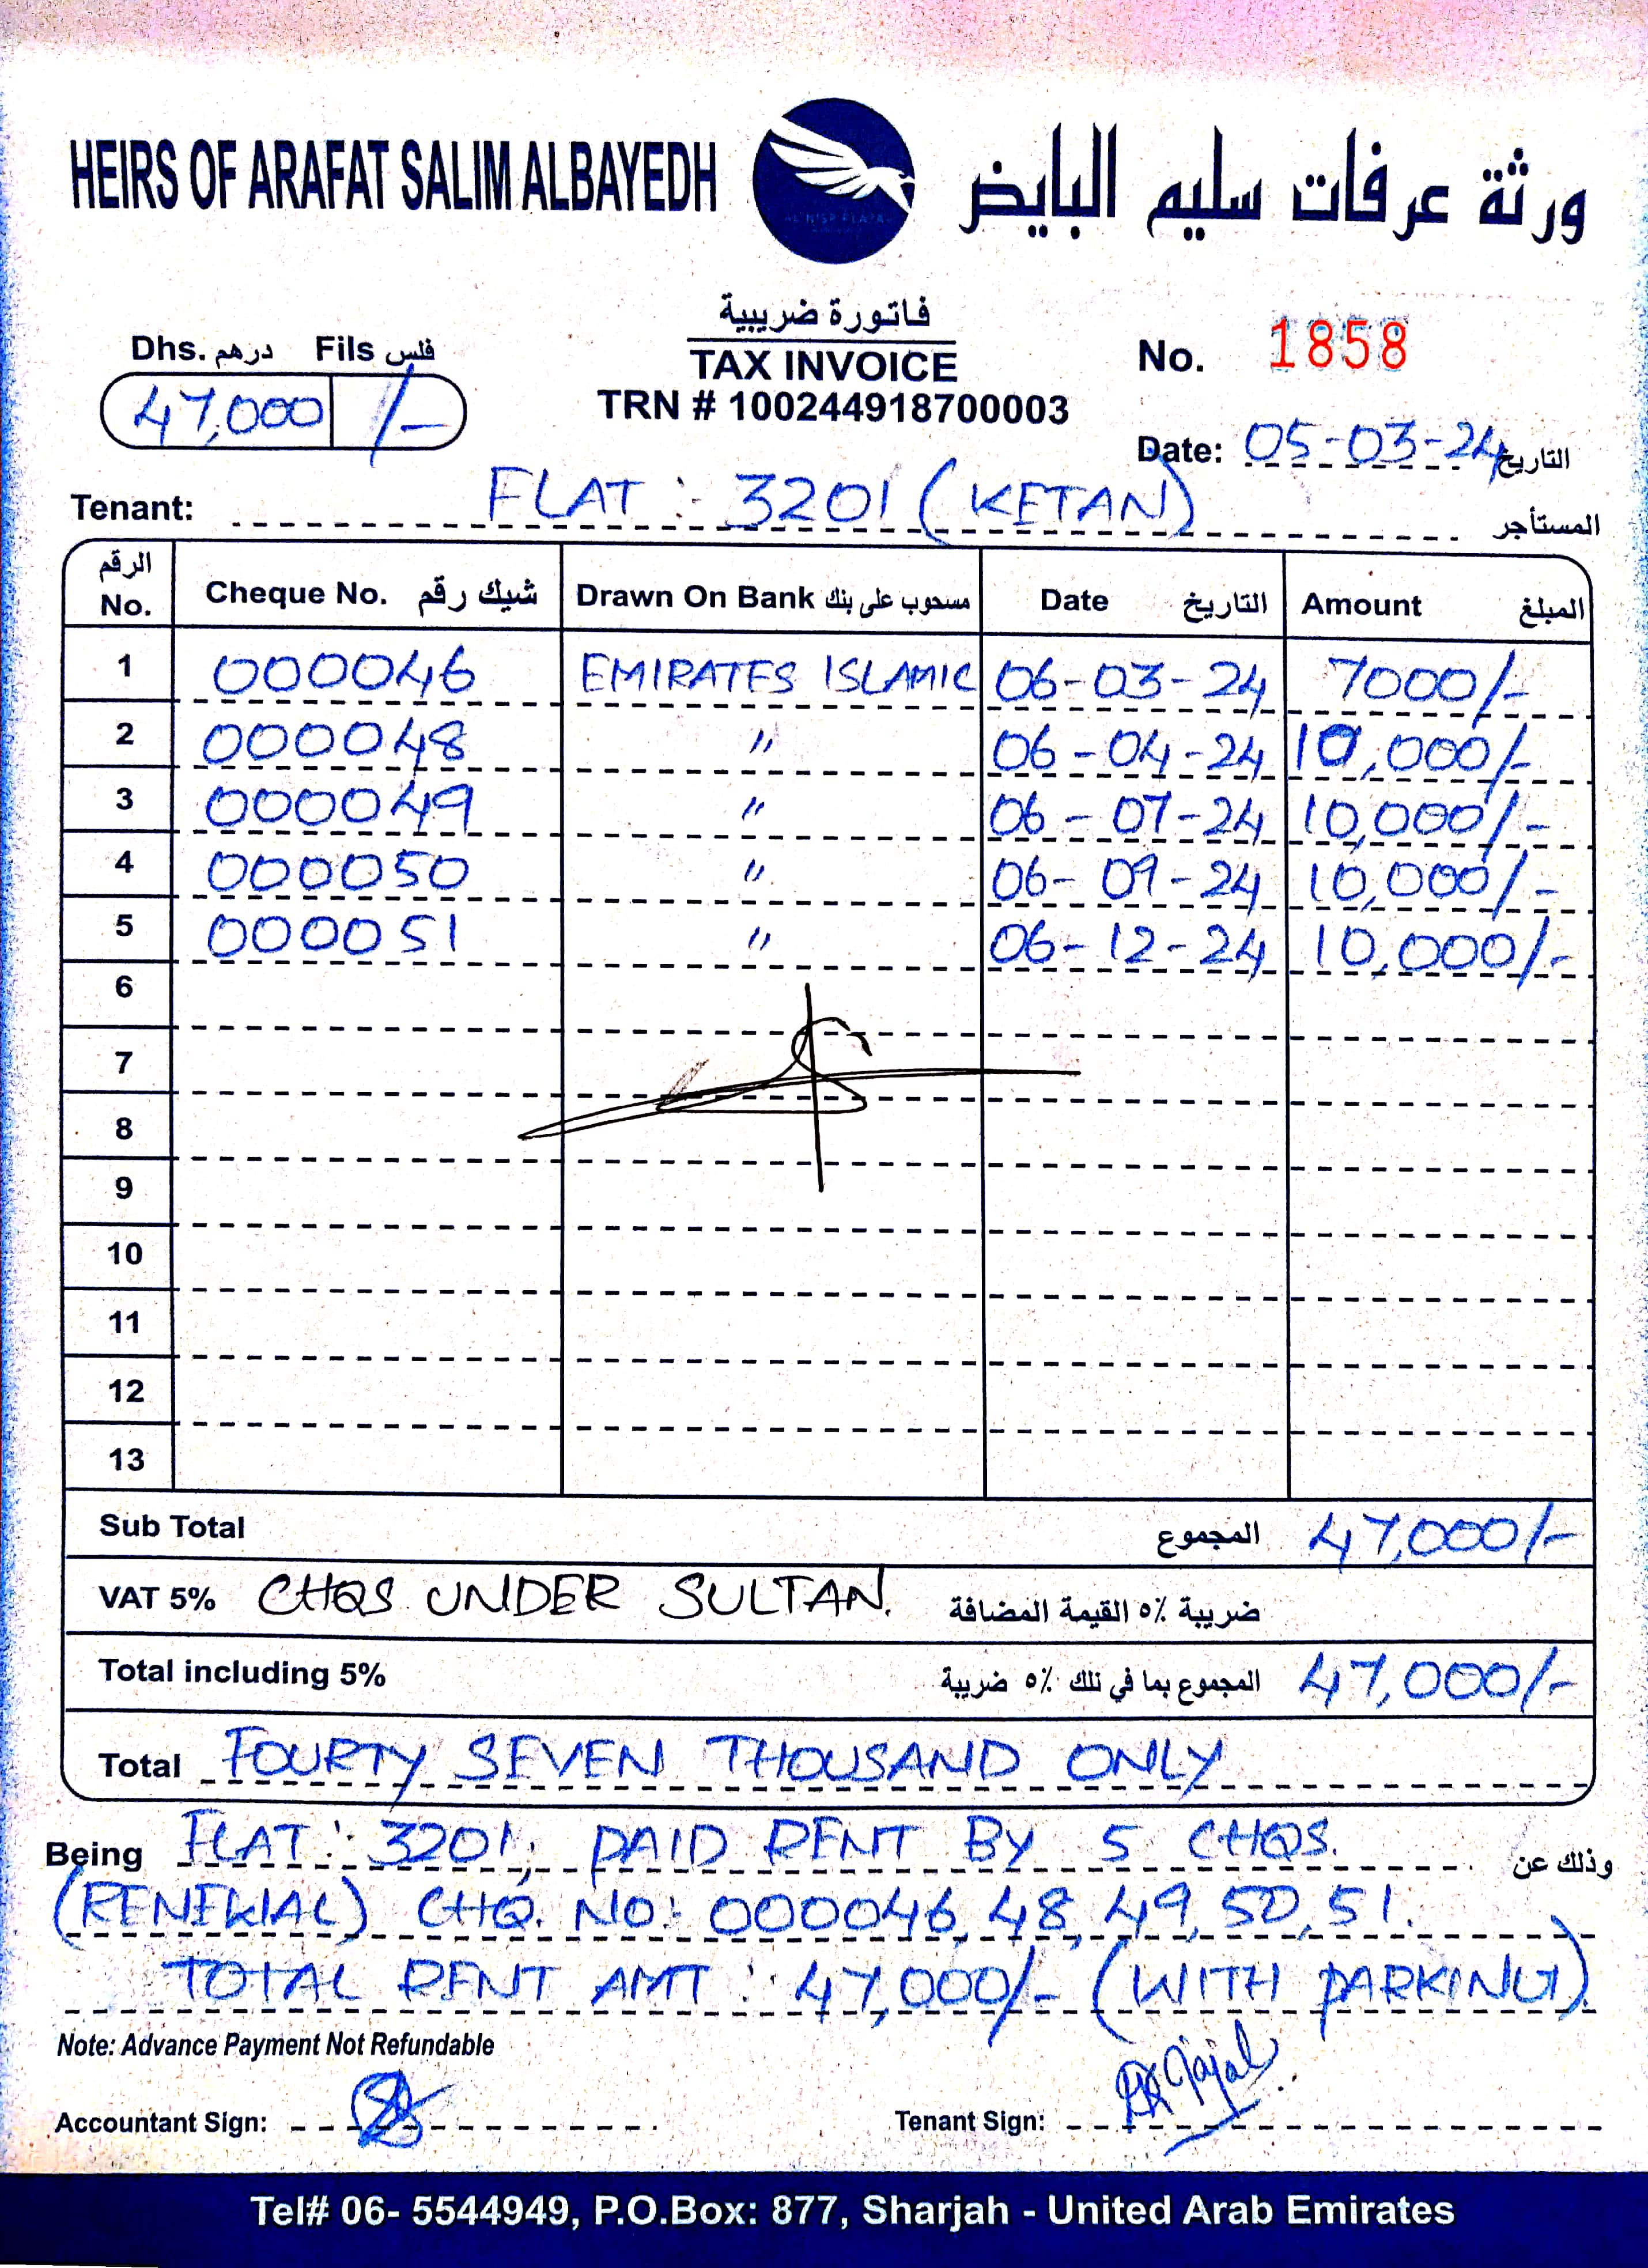 HEIRS OF ARAFAT SALIM ALBAYEDH
ورثة عرفات سليم البايض
فاتورة ضريبية
TAX INVOICE
TRN # 100244918700003
Dhs. درهم Fils فلس
47,000 /-
No. 1858
Date: 05-03-24 التاريخ
Tenant: FLAT : 3201 (KETAN) المستأجر
الرقم No. Cheque No. شيك رقم Drawn On Bank مسحوب على بنك Date التاريخ Amount المبلغ
1 000046 EMIRATES ISLAMIC 06-03-24 7000/-
2 000048 " 06-04-24 10,000/-
3 000049 " 06-07-24 10,000/-
4 000050 " 06-09-24 10,000/-
5 000051 " 06-12-24 10,000/-
6
7
8
9
10
11
12
13
Sub Total المجموع 47,000/-
VAT 5% CHQS UNDER SULTAN. ضريبة ٥٪ القيمة المضافة
Total including 5% المجموع بما في ذلك ٥٪ ضريبة 47,000/-
Total FOURTY SEVEN THOUSAND ONLY
Being FLAT : 3201, PAID RENT BY 5 CHQS. وذلك عن
(RENEWAL) CHQ. NO: 000046, 48, 49, 50, 51.
TOTAL RENT AMT : 47,000/- (WITH PARKING)
Note: Advance Payment Not Refundable
Accountant Sign:
Tenant Sign:
Tel# 06- 5544949, P.O.Box: 877, Sharjah - United Arab Emirates